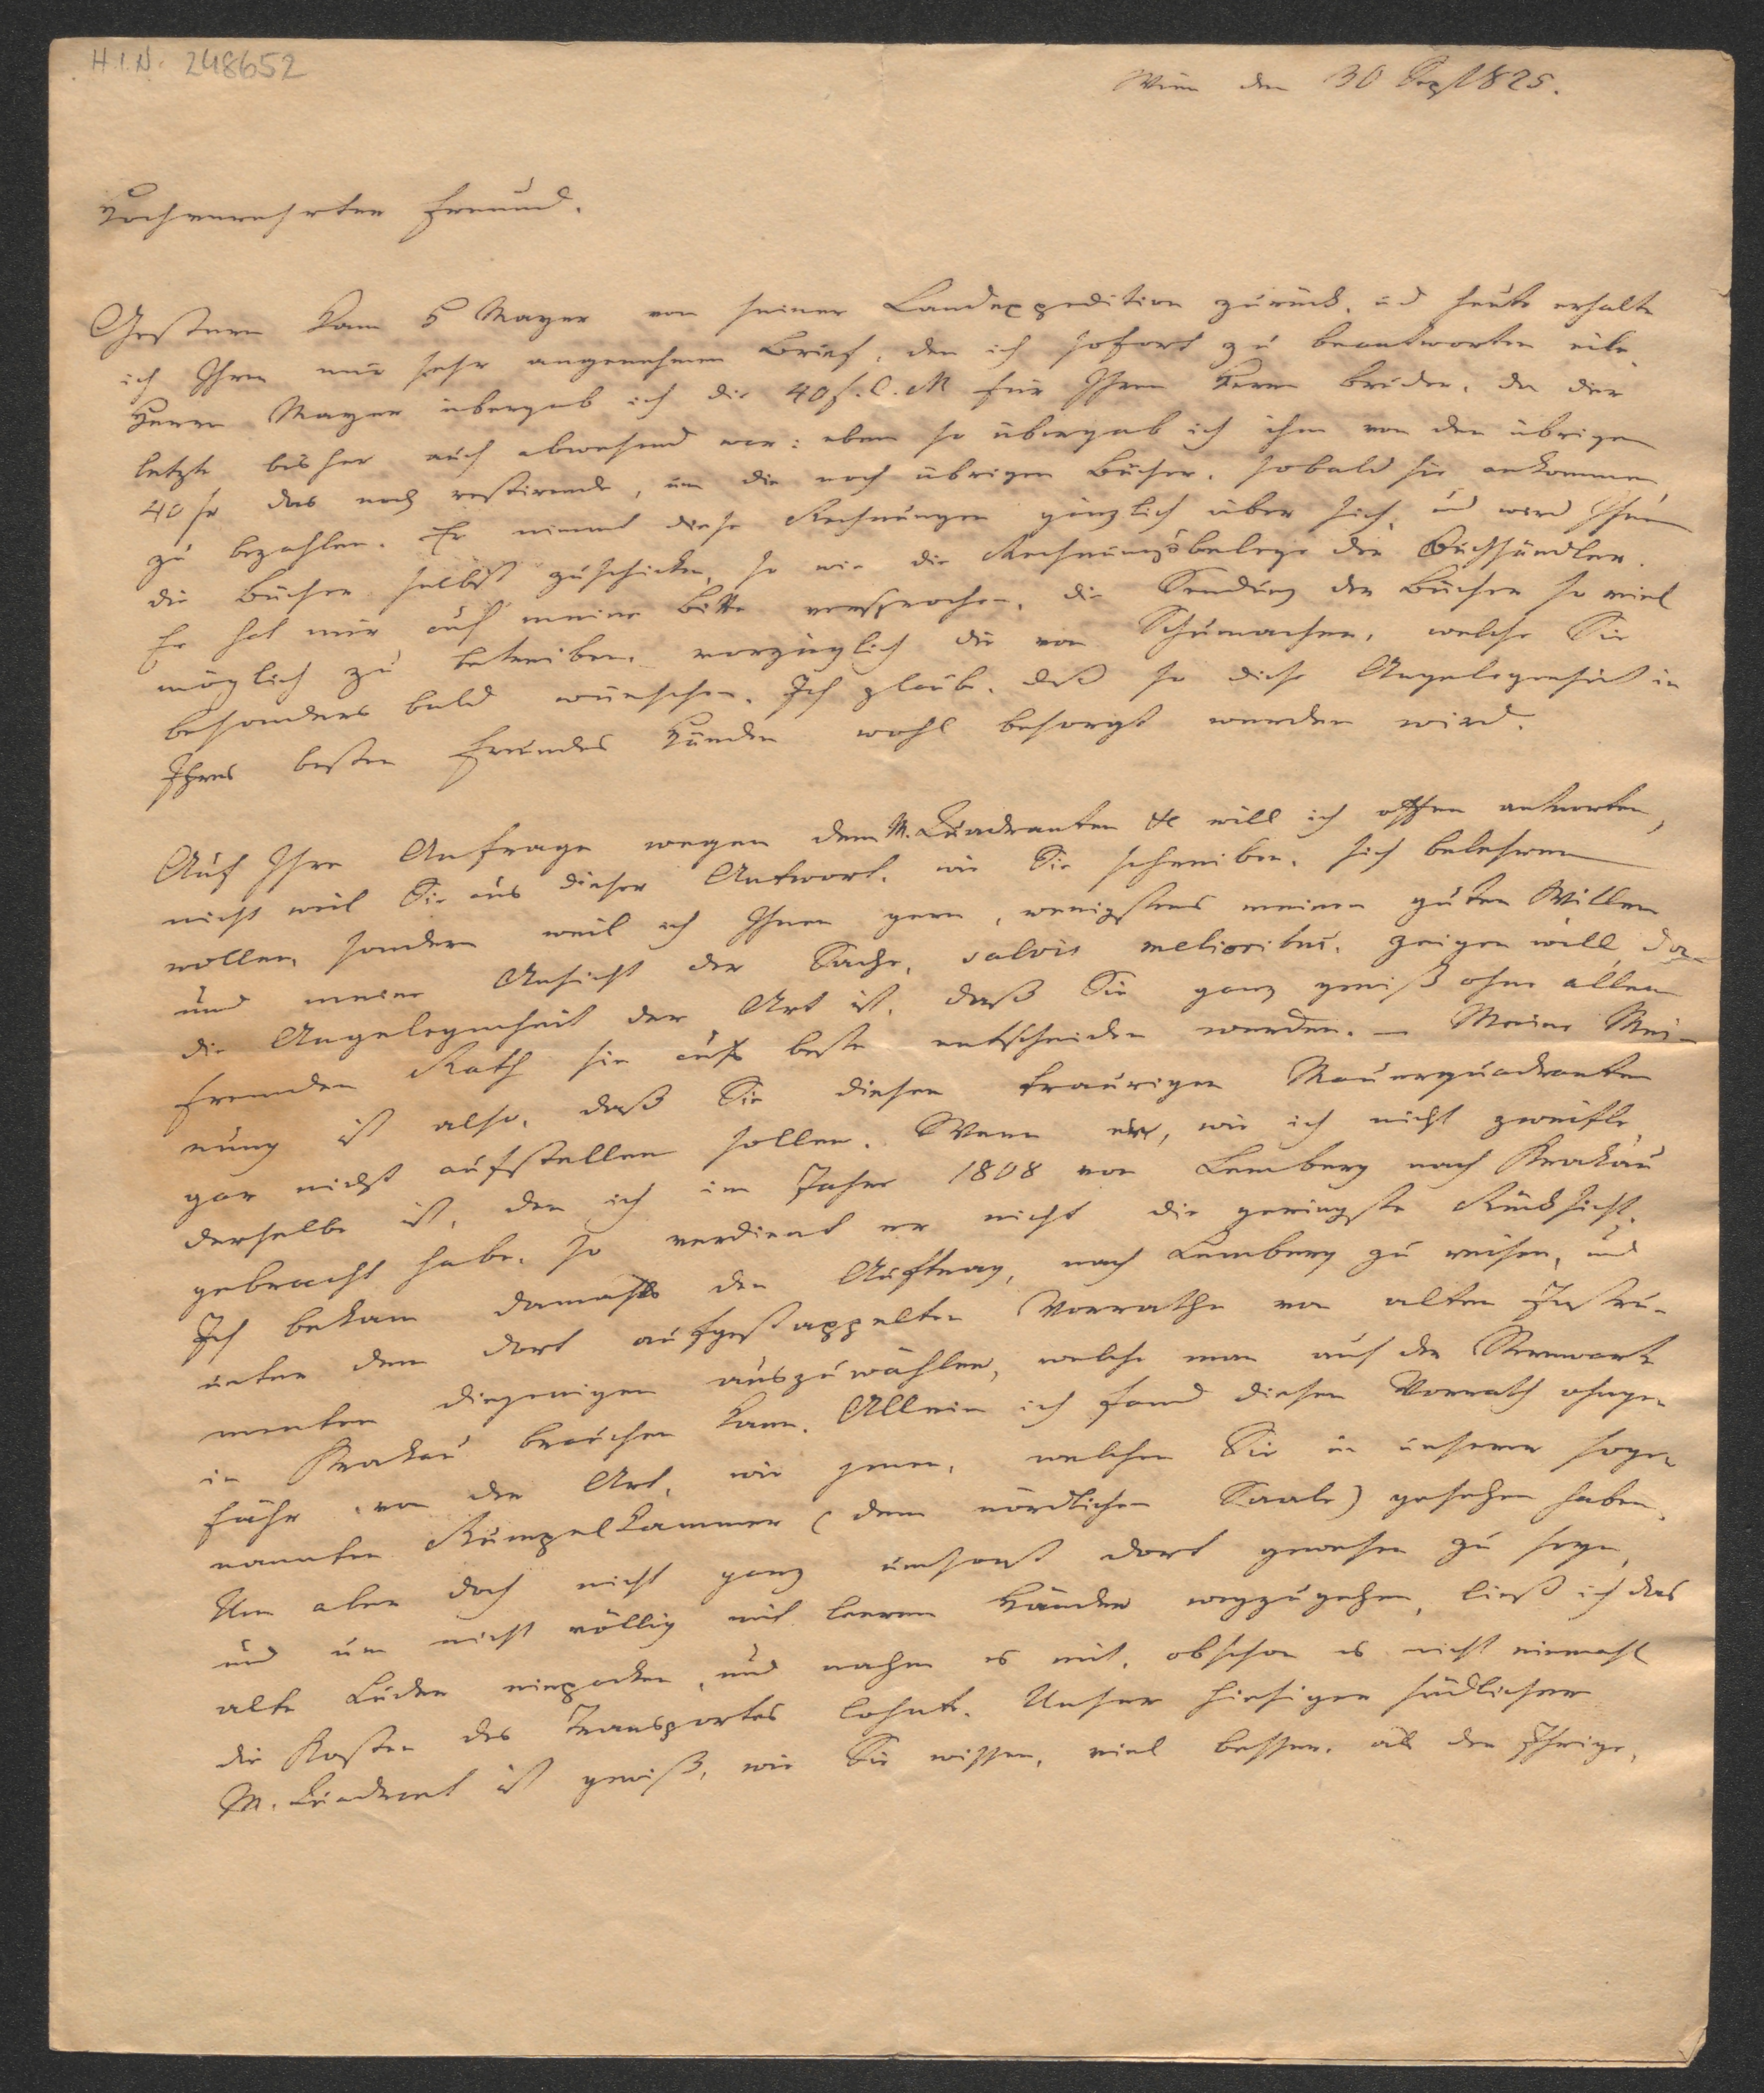 H.I.N. 248652
Wien den 30 Sept 1825.
Hochverehrter Freund.
Gestern kam H Mayer von seiner Landexpedition zurück, und heute erhalte
ich Ihren mir sehr angenehmen Brief, den ich sofort zu beantworten eile.
Herrn Mayer übergab ich die 40 f. C. M für Ihren Herrn Bruder, da der
letzte bisher auch abwesend war: eben so übergab ich ihm von den übrigen
40 f das noch restirende, um die noch übrigen Bücher, sobald sie ankommen,
zu bezahlen. Er nimmt diese Rechnungen gänzlich über sich, und wird Ihnen
die Bücher selbst zuschicken, so wie die Rechnungsbelege der Buchhändler.
Er hat mir auf meine Bitte versprochen, die Sendung der Bücher so viel
möglich zu betreiben, vorzüglich die von Schumacher, welche Sie
besonders bald wünschen. Ich glaube, daß so diese Angelegenheit in
Ihres besten Freundes Händen wohl besorgt werden wird.
Auf Ihre Anfrage wegen dem M. Quadranten etc will ich offen antworten,
nicht weil Sie aus dieser Antwort, wie Sie schreiben, sich belehren
wollen, sondern weil ich Ihnen gern, wenigstens meinen guten Willen
und meine Ansicht der Sache, salvis melioribus, zeigen will, da
die Angelegenheit der Art ist, daß Sie ganz gewiß ohne allen
fremden Rath sie aufs beste entscheiden werden. – Meine Mei-
nung ist also, daß Sie diesen traurigen Mauerquadranten
gar nicht aufstellen sollen. Wenn er, wie ich nicht zweifle,
derselbe ist, den ich im Jahre 1808 von Lemberg nach Krakau
gebracht habe, so verdient er nicht die geringste Rücksicht.
Ich bekam damahls den Auftrag, nach Lemberg zu reisen, und
unter dem dort aufgestappelten Vorrathe von alten Instru-
menten diejenigen auszuwählen, welche man auf der Sternwarte
in Krakau brauchen kann. Allein ich fand diesen Vorrath ohnge-
fähr von der Art, wie jenen, welchen Sie in unserer soge-
nannten Rumpelkammer (dem nördlichen Saale) gesehen haben.
Um aber doch nicht ganz umsonst dort gewesen zu seyn,
und um nicht völlig mit leeren Händen wegzugehen, ließ ich das
alte Luder einpacken, und nahm es mit, obschon es nicht einmahl
die Kosten des Transportes lohnte. Unser hiesiger südlicher
M. Quadrant ist gewiß, wie Sie wissen, viel besser, als der Ihrige,